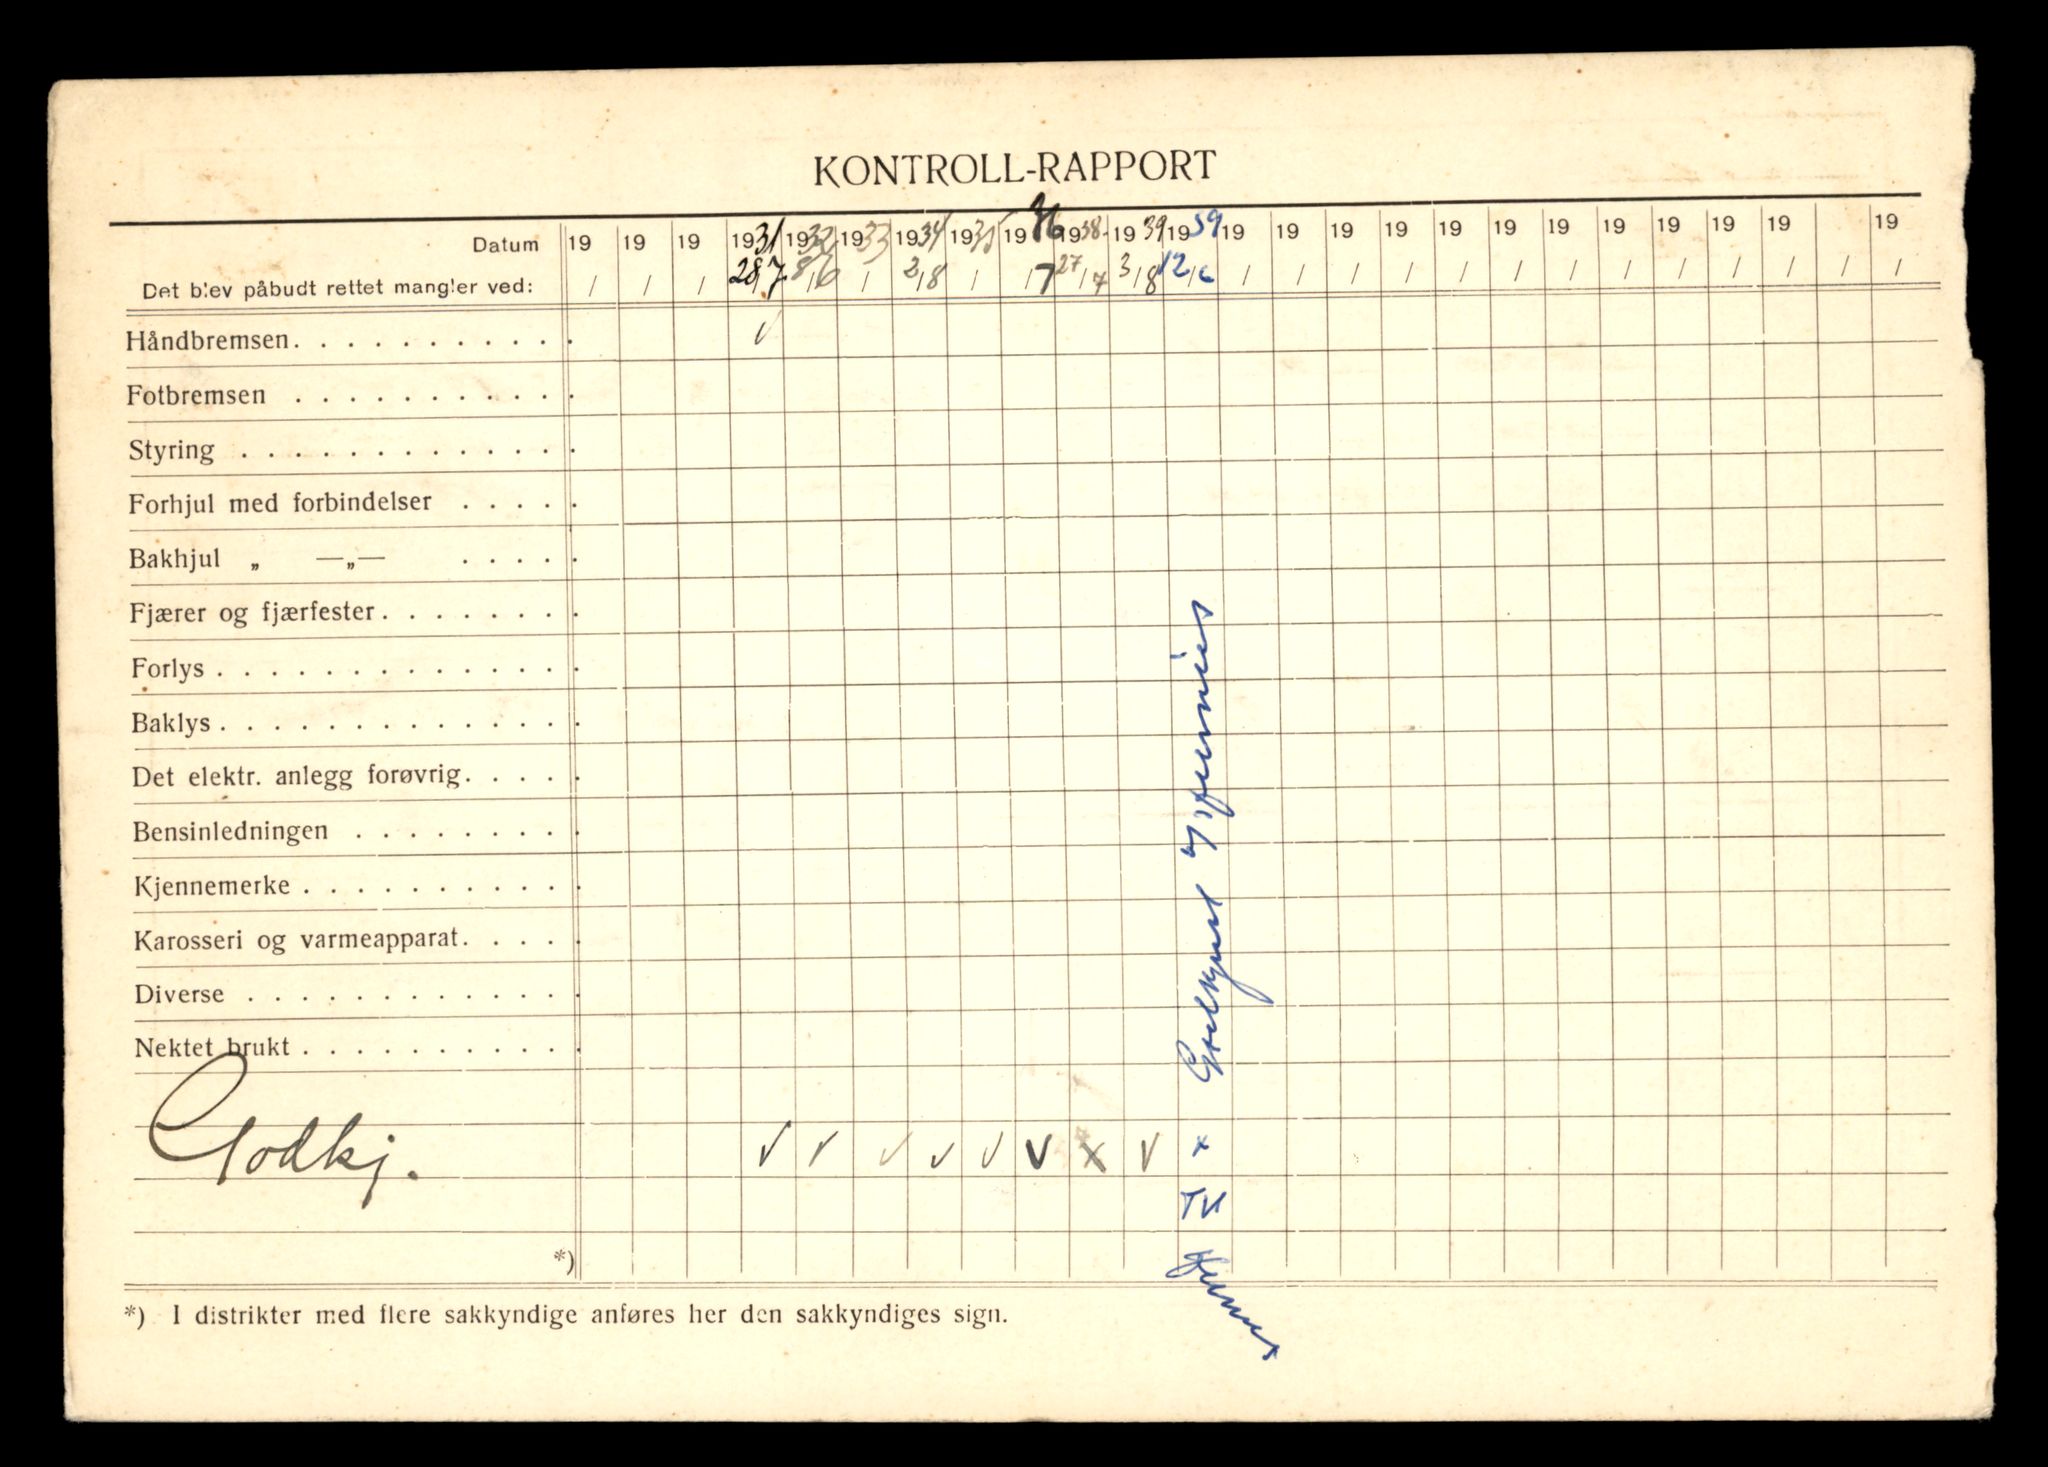 KONTROLL-RAPPORT
Datum 19 19 19 1931 1932 1933 1934 1935 1936 1938 1939 1959 19 19 19 19 19 19 19 19 19 19 19 19
Det blev påbudt rettet mangler ved: / / / 28/7 8/6 / 2/8 / /7 27/7 3/8 12/6 / / / / / / / / / / / / /
Håndbremsen. . . . . . . . . . . ✓
Fotbremsen . . . . . . . . . . .
Styring . . . . . . . . . . . . .
Forhjul med forbindelser . . . . .
Bakhjul „ —„— . . . . .
Fjærer og fjærfester. . . . . . . .
Forlys . . . . . . . . . . . . . .
Baklys . . . . . . . . . . . . . .
Det elektr. anlegg forøvrig. . . . .
Bensinledningen . . . . . . . . .
Kjennemerke . . . . . . . . . . .
Karosseri og varmeapparat. . . . .
Diverse . . . . . . . . . . . . .
Nektet brukt . . . . . . . . . . .
Godkj. ✓ ✓ ✓ ✓ ✓ ✓ x ✓ x
Godkjent
TK
*)
*) I distrikter med flere sakkyndige anføres her den sakkyndiges sign.